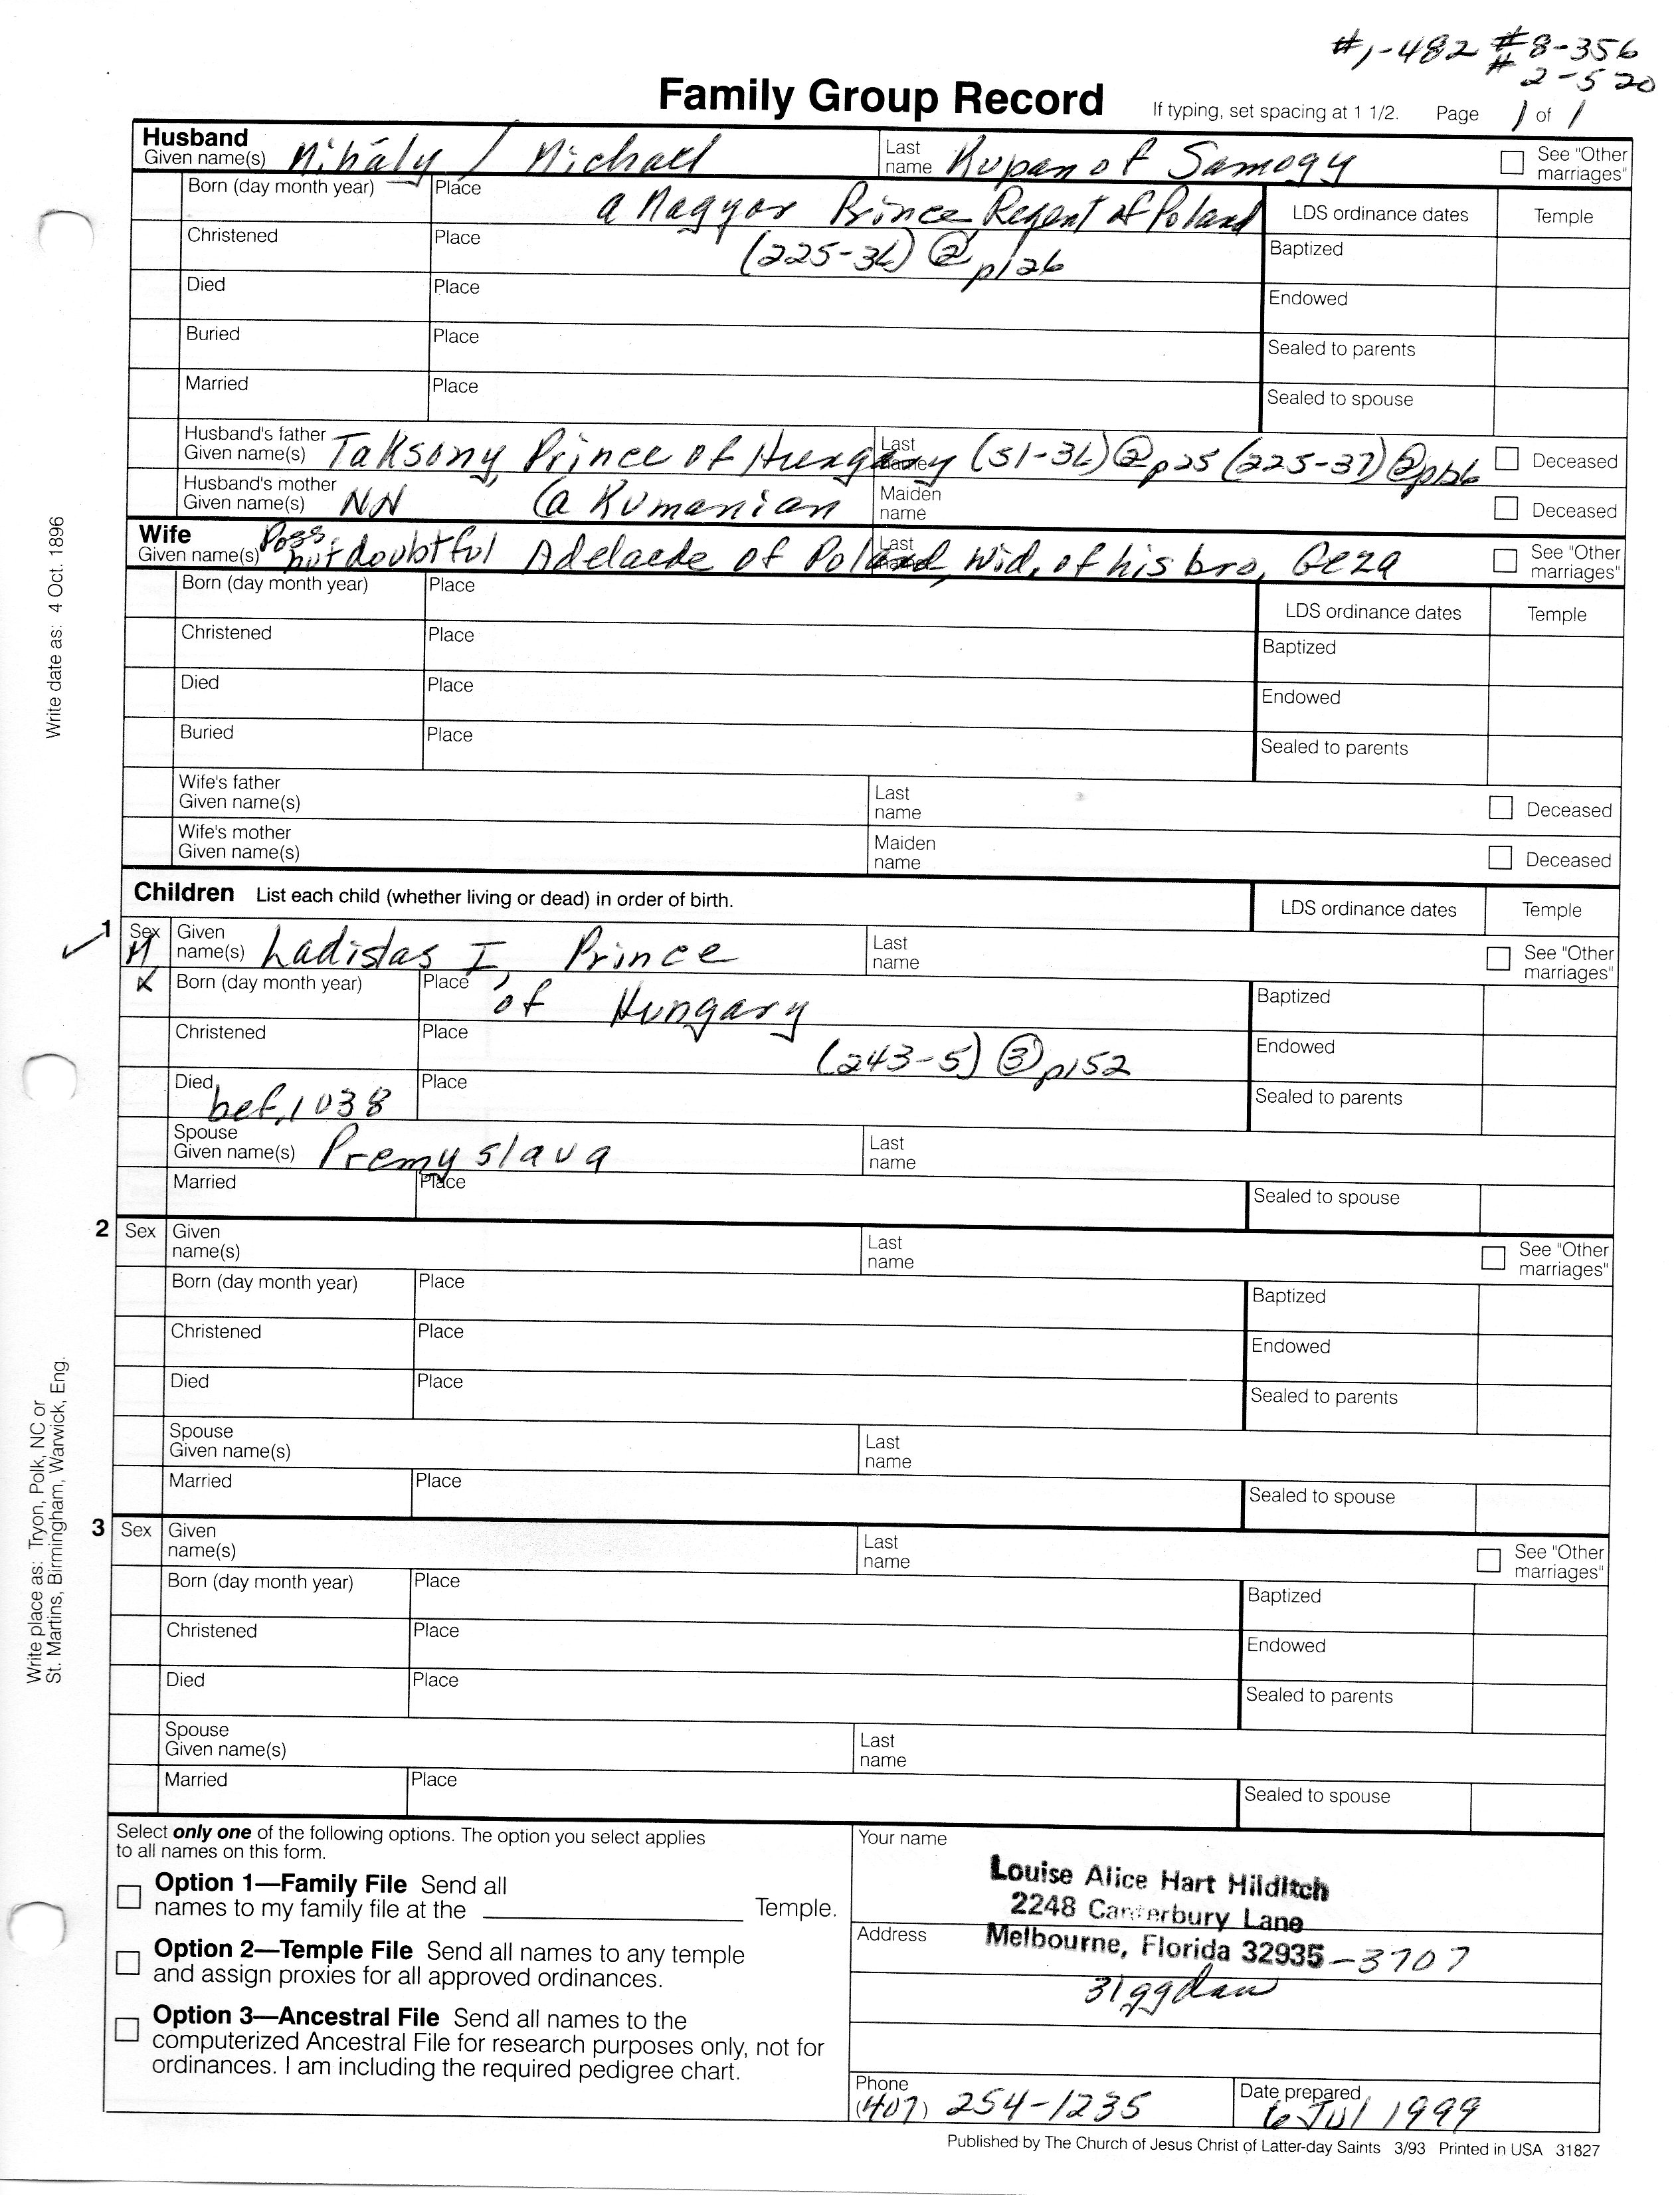 #1-482 #8-356
# 2-520
Family Group Record If typing, set spacing at 1 1/2. Page 1 of 1
Husband
Given name(s) Mihály / Michael Last name Kupan of Samogy See "Other marriages"
Born (day month year) Place a Magyar Prince, Regent of Poland LDS ordinance dates Temple
Christened Place (225-36) @ p126 Baptized
Died Place Endowed
Buried Place Sealed to parents
Married Place Sealed to spouse
Husband's father Given name(s) Taksony, Prince of Hungary Last name (51-36) @ p25 (225-37) @ p126 Deceased
Husband's mother Given name(s) NN (a Kumanian Maiden name Deceased
Wife
Given name(s) Poss. but doubtful Adelaede of Poland, Wid. of his bro, Geza Last name See "Other marriages"
Born (day month year) Place LDS ordinance dates Temple
Christened Place Baptized
Died Place Endowed
Buried Place Sealed to parents
Wife's father Given name(s) Last name Deceased
Wife's mother Given name(s) Maiden name Deceased
Children List each child (whether living or dead) in order of birth. LDS ordinance dates Temple
1 Sex M Given name(s) Ladislas I, Prince Last name See "Other marriages"
X Born (day month year) Place of Hungary Baptized
Christened Place (243-5) ③ p152 Endowed
Died bef, 1038 Place Sealed to parents
Spouse Given name(s) Premyslava Last name
Married Place Sealed to spouse
2 Sex Given name(s) Last name See "Other marriages"
Born (day month year) Place Baptized
Christened Place Endowed
Died Place Sealed to parents
Spouse Given name(s) Last name
Married Place Sealed to spouse
3 Sex Given name(s) Last name See "Other marriages"
Born (day month year) Place Baptized
Christened Place Endowed
Died Place Sealed to parents
Spouse Given name(s) Last name
Married Place Sealed to spouse
Select only one of the following options. The option you select applies
to all names on this form.
Option 1—Family File Send all
names to my family file at the Temple.
Option 2—Temple File Send all names to any temple
and assign proxies for all approved ordinances.
Option 3—Ancestral File Send all names to the
computerized Ancestral File for research purposes only, not for
ordinances. I am including the required pedigree chart.
Your name
Louise Alice Hart Hilditch
2248 Canterbury Lane
Address Melbourne, Florida 32935-3707
Phone (407) 254-1235
Date prepared 6 Jul 1999
Published by The Church of Jesus Christ of Latter-day Saints 3/93 Printed in USA 31827
Write date as: 4 Oct. 1896
Write place as: Tryon, Polk, NC or
St. Martins, Birmingham, Warwick, Eng.